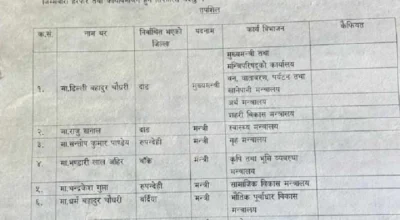 तपसिल
क.सं.
नाम थर
निर्वाचित भएको
जिल्ला
पदनाम
कार्य विभाजन
कैफियत
१.
मा.डिल्ली बहादुर चौधरी
दाङ
मुख्यमन्त्री
मुख्यमन्त्री तथा
मन्त्रिपरिषद्को कार्यालय
वन, वातावरण, पर्यटन तथा
खानेपानी मन्त्रालय
अर्थ मन्त्रालय
सहरी विकास मन्त्रालय
२.
मा.राजु खनाल
दाङ
मन्त्री
स्वास्थ्य मन्त्रालय
३.
मा.सन्तोष कुमार पाण्डेय
रुपन्देही
मन्त्री
गृह मन्त्रालय
४
मा.भण्डारी लाल अहिर
बाँके
मन्त्री
कृषि तथा भूमि व्यवस्था
मन्त्रालय
५.
मा.चन्द्रकेश गुप्ता
रुपन्देही
मन्त्री
सामाजिक विकास मन्त्रालय
६.
मा.धर्म बहादुर चौधरी
बर्दिया
मन्त्री
भौतिक पूर्वाधार विकास
मन्त्रालय